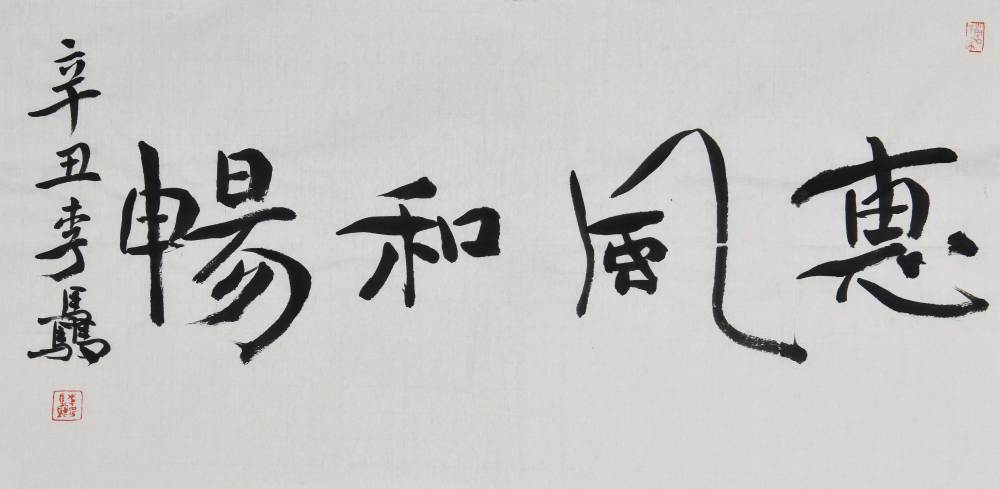 惠風和暢
辛丑李驫